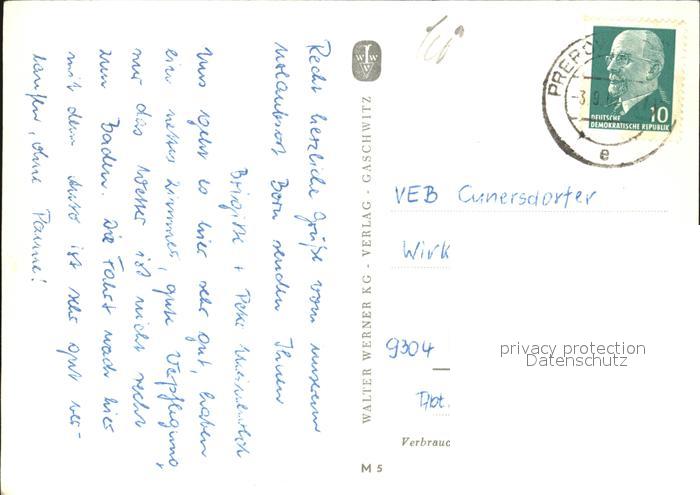 Recht herzliche Grüße vom unserem
Urlaubsort Born senden Ihnen
Brigitte + Peter
Uns geht es hier sehr gut, haben
ein nettes Zimmer, gute Verpflegung,
nur das Wetter ist nicht recht
zum Baden. Die Fahrt nach hier
mit dem Auto ist sehr gut ver-
laufen, ohne Panne!
WALTER WERNER KG - VERLAG - GASCHWITZ
M 5
PREROW
e
10
DEUTSCHE
DEMOKRATISCHE REPUBLIK
VEB Cunersdorfer
Wirk
9304
Abt.
Verbrauc
privacy protection
Datenschutz